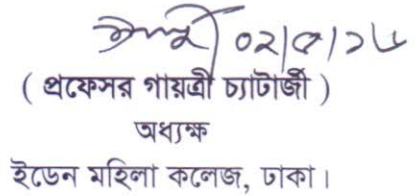 ০২/৫/১৬
( প্রফেসর গায়ত্রী চ্যাটার্জী )
অধ্যক্ষ
ইডেন মহিলা কলেজ, ঢাকা।